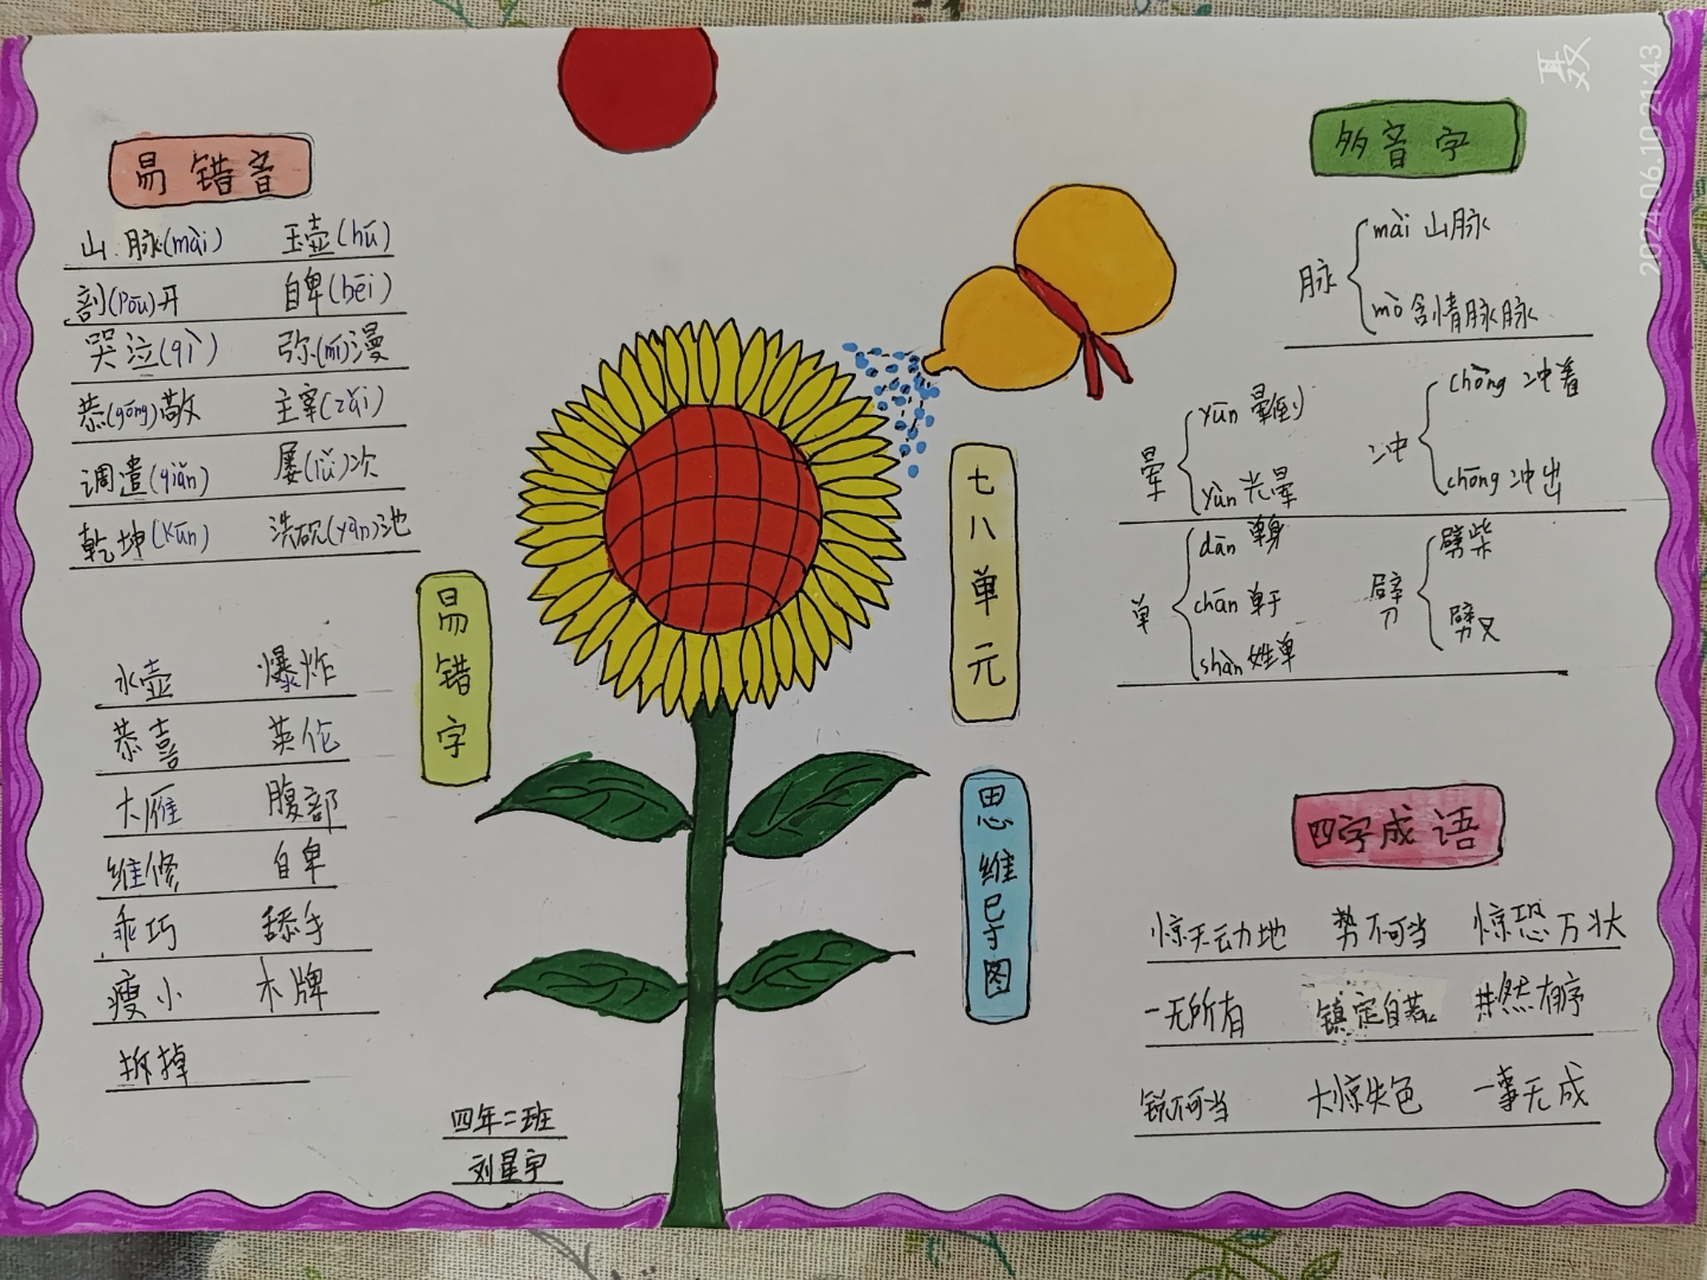 易错音
山脉(mài) 玉壶(hú)
剖(pōu)开 自卑(bēi)
哭泣(qì) 弥(mí)漫
恭(gōng)敬 主宰(zǎi)
调遣(qiǎn) 屡(lǚ)次
乾坤(kūn) 洗砚(yàn)池
易错字
水壶 爆炸
恭喜 英伦
大雁 腹部
维修 自卑
乖巧 舔手
瘦小 木牌
拆掉
四年二班
刘星宇
七八单元
思维导图
多音字
脉
mài 山脉
mò 含情脉脉
晕
yūn 晕倒
yùn 光晕
冲
chōng 冲着
chōng 冲出
单
dān 单身
chán 单于
shàn 姓单
劈
劈柴
劈叉
四字成语
惊天动地 势不可当 惊恐万状
一无所有 镇定自若 井然有序
锐不可当 大惊失色 一事无成
聂
2024.06.10 21:43